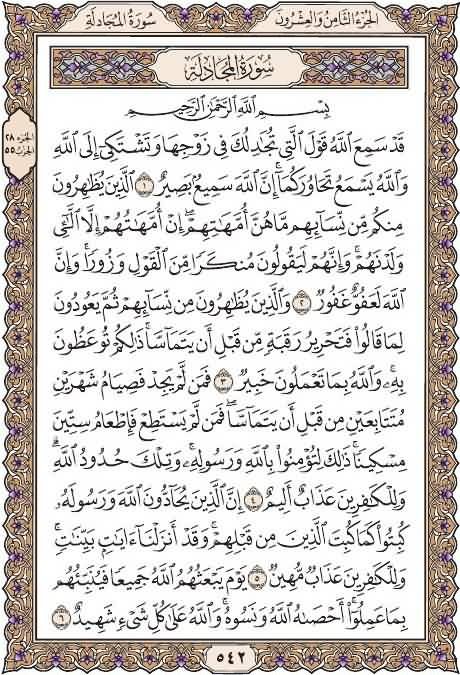 سُورَةُ المُجَادلَةِ
الجُزْءُ الثَّامِنُ وَالعِشْرُونَ
سُورَةُ المُجَادلَةِ
بِسْمِ اللَّهِ الرَّحْمَٰنِ الرَّحِيمِ
الجزء ٢٨
الحزب ٥٥
قَدْ سَمِعَ اللَّهُ قَوْلَ الَّتِي تُجَٰدِلُكَ فِي زَوْجِهَا وَتَشْتَكِي إِلَى اللَّهِ
وَاللَّهُ يَسْمَعُ تَحَاوُرَكُمَا إِنَّ اللَّهَ سَمِيعٌ بَصِيرٌ ١ الَّذِينَ يُظَٰهِرُونَ
مِنكُم مِّن نِّسَآئِهِم مَّا هُنَّ أُمَّهَٰتِهِمْ إِنْ أُمَّهَٰتُهُمْ إِلَّا الَّٰٓـِٔي
وَلَدْنَهُمْ وَإِنَّهُمْ لَيَقُولُونَ مُنكَرًا مِّنَ الْقَوْلِ وَزُورًا وَإِنَّ
اللَّهَ لَعَفُوٌّ غَفُورٌ ٢ وَالَّذِينَ يُظَٰهِرُونَ مِن نِّسَآئِهِمْ ثُمَّ يَعُودُونَ
لِمَا قَالُوا فَتَحْرِيرُ رَقَبَةٍ مِّن قَبْلِ أَن يَتَمَآسَّا ذَٰلِكُمْ تُوعَظُونَ
بِهِ وَاللَّهُ بِمَا تَعْمَلُونَ خَبِيرٌ ٣ فَمَن لَّمْ يَجِدْ فَصِيَامُ شَهْرَيْنِ
مُتَتَابِعَيْنِ مِن قَبْلِ أَن يَتَمَآسَّا فَمَن لَّمْ يَسْتَطِعْ فَإِطْعَامُ سِتِّينَ
مِسْكِينًا ذَٰلِكَ لِتُؤْمِنُوا بِاللَّهِ وَرَسُولِهِ وَتِلْكَ حُدُودُ اللَّهِ
وَلِلْكَٰفِرِينَ عَذَابٌ أَلِيمٌ ٤ إِنَّ الَّذِينَ يُحَآدُّونَ اللَّهَ وَرَسُولَهُ
كُبِتُوا كَمَا كُبِتَ الَّذِينَ مِن قَبْلِهِمْ وَقَدْ أَنزَلْنَآ ءَايَٰتٍ بَيِّنَٰتٍ
وَلِلْكَٰفِرِينَ عَذَابٌ مُّهِينٌ ٥ يَوْمَ يَبْعَثُهُمُ اللَّهُ جَمِيعًا فَيُنَبِّئُهُم
بِمَا عَمِلُوا أَحْصَىٰهُ اللَّهُ وَنَسُوهُ وَاللَّهُ عَلَىٰ كُلِّ شَيْءٍ شَهِيدٌ ٦
٥٤٢